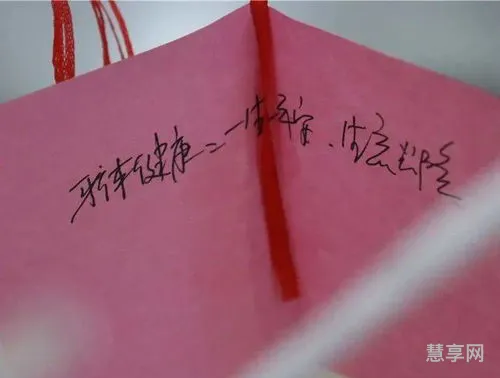 健康 一生平安、生意兴隆
慧享网